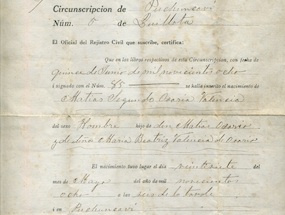 Circunscripcion de
Núm. 8 de Quillota
El Oficial del Rejistro Civil que suscribe, certifica:
Que en los libros respectivos de esta Circunscripcion, con fecha de
quince de Junio de mil novecientos ocho
i signado con el Núm. 85 se halla inscrito el nacimiento de
Matias Segundo Osorio Valencia
del sexo Hombre hijo de don Matias Osorio
y de doña Maria Beatriz Valencia de Osorio
El nacimiento tuvo lugar el dia del
mes de Mayo del año de mil novecientos
ocho a las seis de la tarde
i en